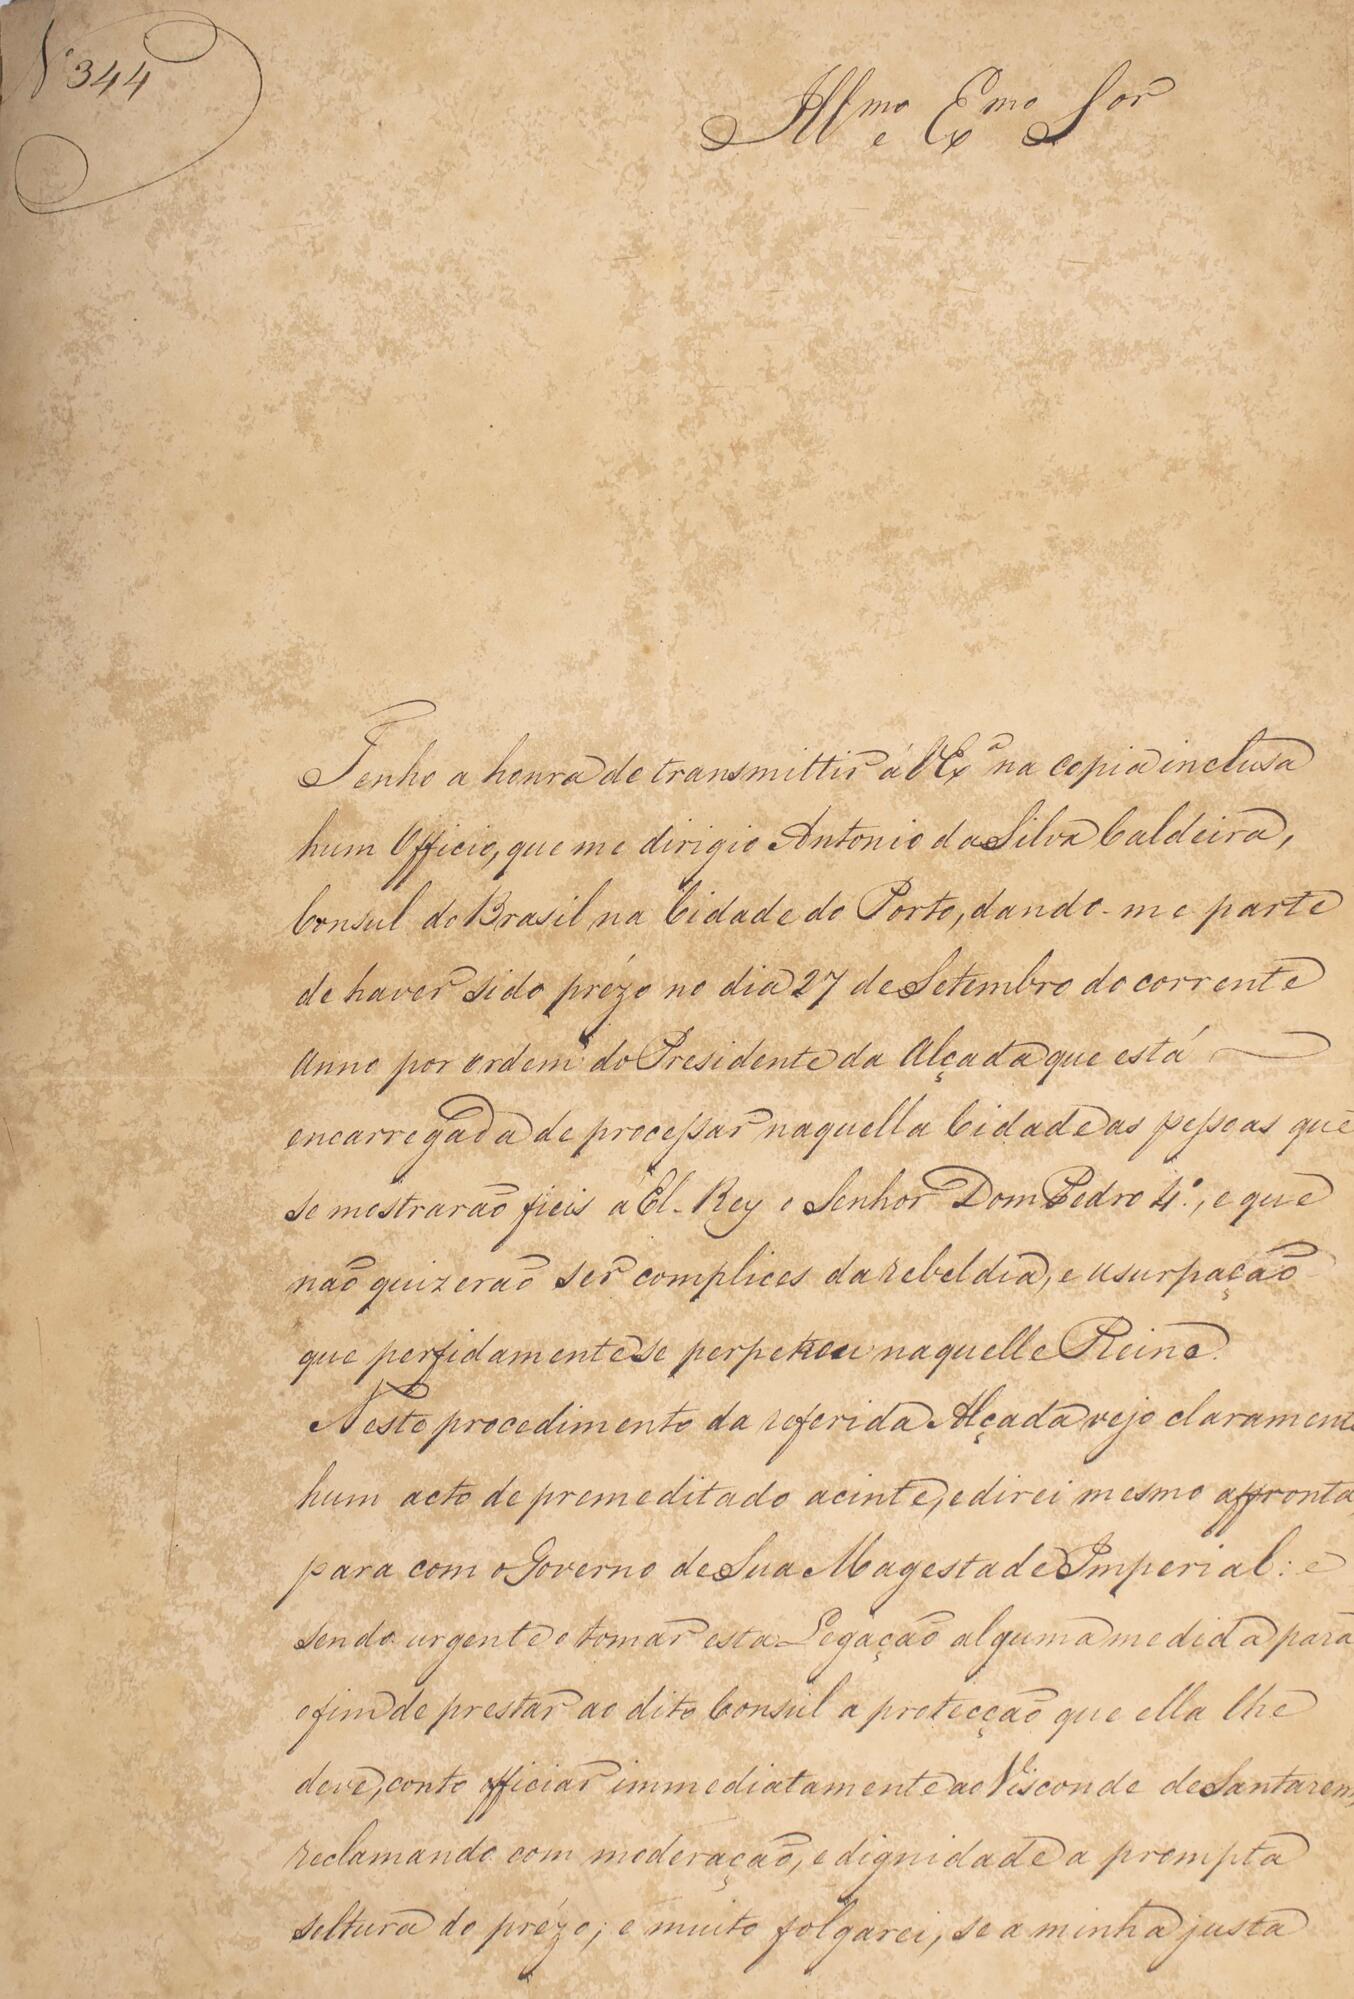 N.º 344
Illmo e Exmo Sor
Tenho a honra de transmittir á V Exª na copia inclusa
hum Officio, que me dirigio Antonio da Silva Caldeira,
Consul do Brasil na Cidade do Porto, dando-me parte
de haver sido prézo no dia 27 de Setembro do corrente
Anno por ordem do Presidente da Alçada que está
encarregada de processar naquella Cidade as pessoas que
se mostrarão fieis á El-Rey o Senhor Dom Pedro 4.º, e que
não quizerão ser complices da rebeldia, e usurpação
que perfidamente se perpetrou naquelle Reino.
Neste procedimento da referida Alçada vejo clarament
hum acto de premeditado acinte, e direi mesmo affronta
para com o Governo de Sua Magestade Imperial: e
sendo urgente o tomar esta Legação alguma medida para
o fim de prestar ao dito Consul a protecção que ella lhe
deve, conto officiar immediatamente ao Visconde de Santarem,
reclamando com moderação, e dignidade a prompta
soltura do prézo; e muito folgarei, se a minha justa